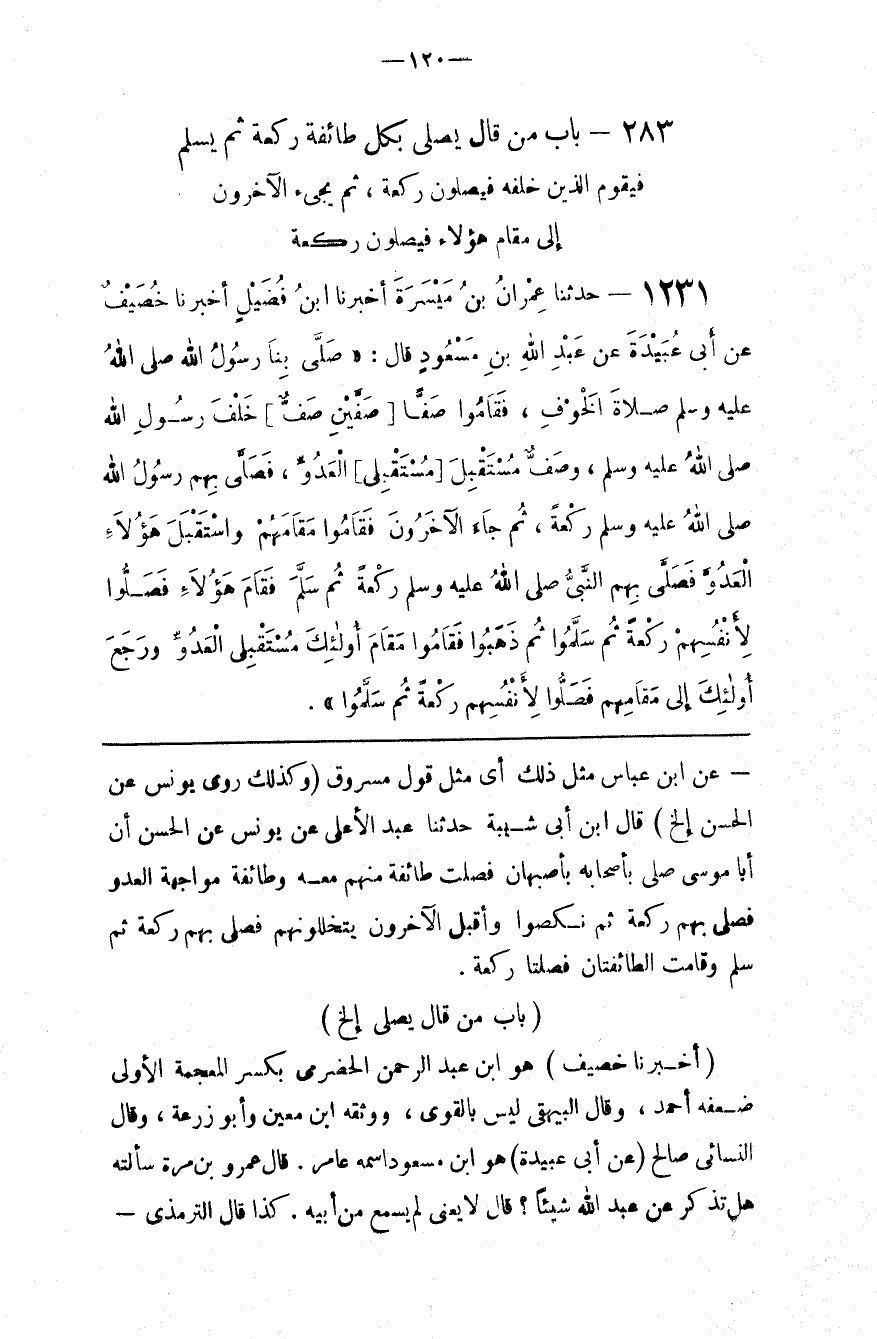 —١٢٠—
٢٨٣ – باب من قال يصلى بكل طائفة ركعة ثم يسلم
فيقوم الذين خلفه فيصلون ركعة ، ثم يجىء الآخرون
إلى مقام هؤلاء فيصلون ركعة
١٢٣١ – حدثنا عِمْرانُ بنُ مَيْسَرَةَ أخبرنا ابنُ فُضَيْلٍ أخبرنا خُصَيْفٌ
عن أَبى عُبَيْدَةَ عن عَبْدِ اللهِ بنِ مَسْعُودٍ قال : « صَلَّى بِنَا رسولُ الله صلى اللهُ
عليه وسلم صلاةَ الْخوْفِ ، فَقَامُوا صَفًّا [ صَفَّيْنِ صَفٌّ ] خَلْفَ رسُولِ الله
صلى اللهُ عليه وسلم ، وصَفٌّ مُسْتَقْبِلَ [مُسْتَقْبِلِى] الْعَدُوِّ ، فَصَلَّى بِهم رسوُلُ الله
صلى اللهُ عليه وسلم ركْعةً ، ثُم جاءَ الآخَرُونَ فَقَامُوا مَقَامَهُمْ واسْتَقْبَلَ هَؤُلاَءِ
الْعَدُوَّ فَصَلَّى بِهِم النَّبىُّ صلى اللهُ عليه وسلم ركْعةً ثُم سَلَّمَ فَقَامَ هَؤُلاَءِ فَصَلُّوا
لِأَنْفُسِهِمْ ركْعةً ثُم سَلَّمُوا ثُم ذَهَبُوا فَقَامُوا مَقَامَ أُولٰئِكَ مُسْتَقْبِلِى الْعَدُوِّ ورَجَعَ
أُولٰئِكَ إلى مَقَامِهِم فَصَلُّوا لِأَنْفُسِهِم ركْعةً ثُم سَلَّمُوا » .
– عن ابن عباس مثل ذلك أى مثل قول مسروق (وكذلك روى يونس عن
الحسن إلخ ) قال ابن أبى شيبة حدثنا عبد الأعلى عن يونس عن الحسن أن
أبا موسى صلى بأصحابه بأصبهان فصلت طائفة منهم معه وطائفة مواجهة العدو
فصلى بهم ركعة ثم نكصوا وأقبل الآخرون يتخللونهم فصلى بهم ركعة ثم
سلم وقامت الطائفتان فصلتا ركعة .
( باب من قال يصلى إلخ )
( أخبرنا خصيف ) هو ابن عبد الرحمن الحضرمى بكسر المعجمة الأولى
ضعفه أحمد ، وقال البيهقى ليس بالقوى ، ووثقه ابن معين وأبو زرعة ، وقال
النسائى صالح (عن أبى عبيدة) هو ابن مسعود اسمه عامر . قال عمرو بن مرة سألته
هل تذكر عن عبد الله شيئاً ؟ قال لا يعنى لم يسمع من أبيه . كذا قال الترمذى –